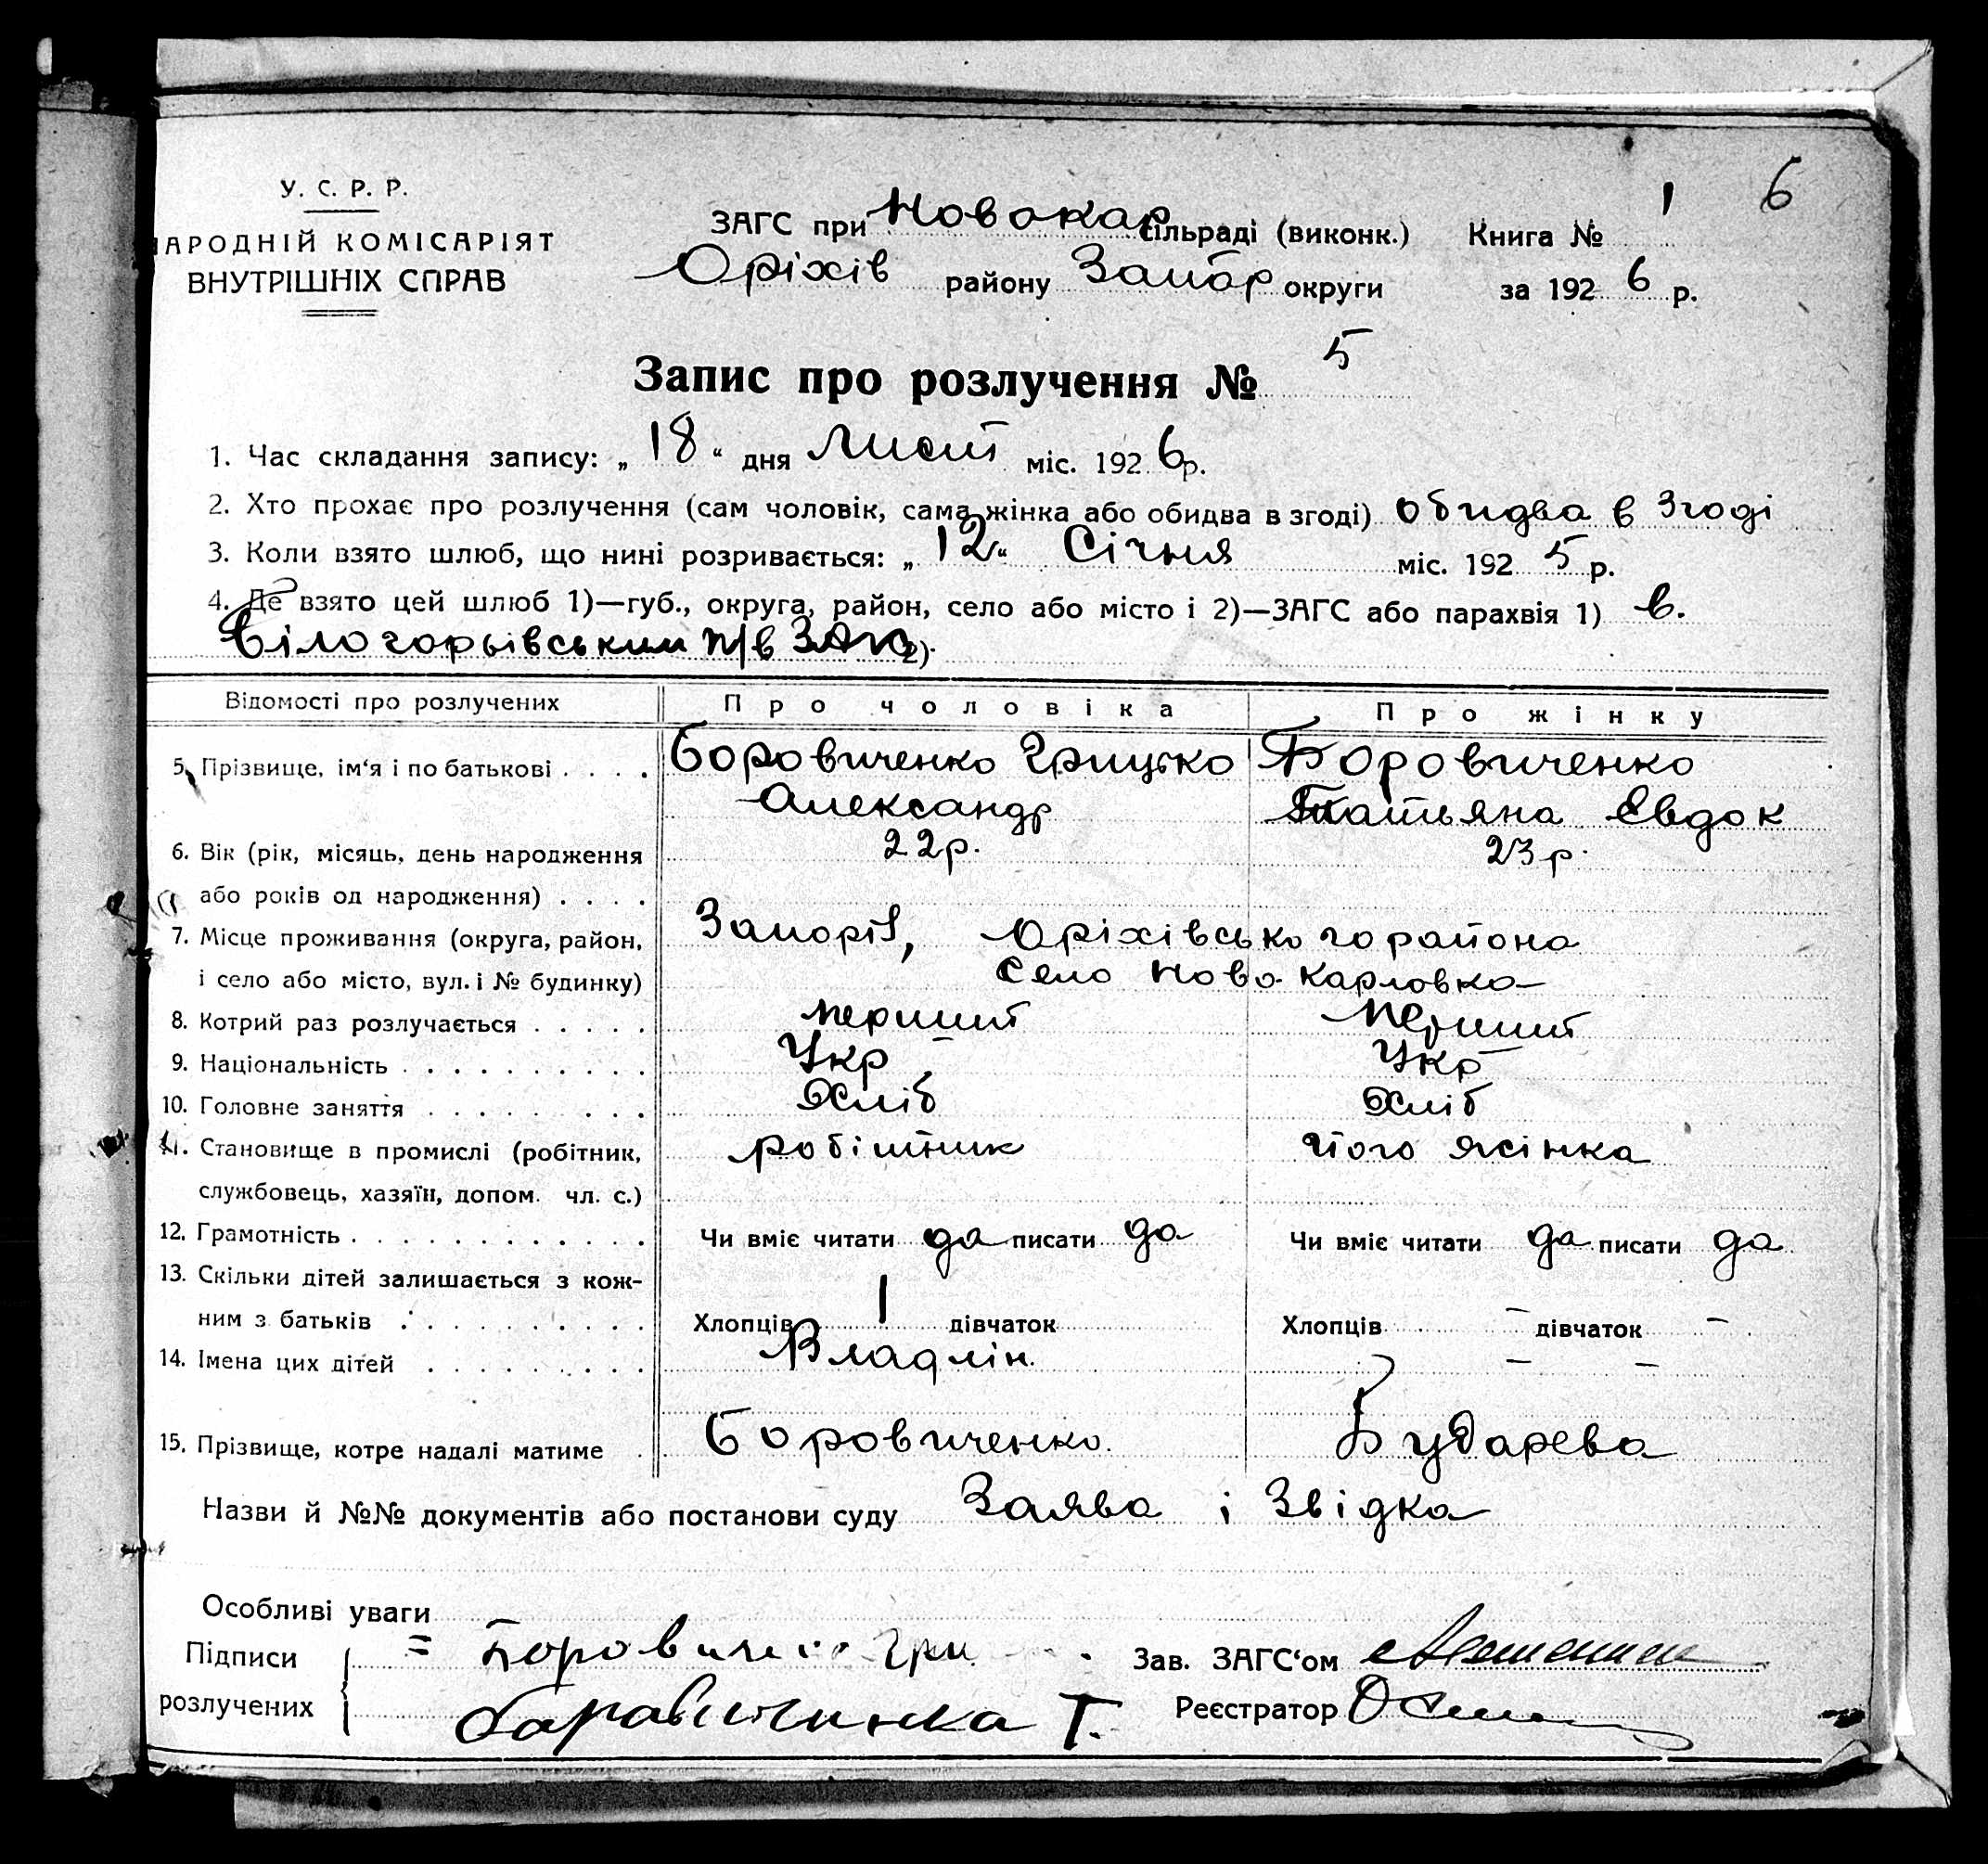 6
У. С. Р. Р.
НАРОДНІЙ КОМІСАРІЯТ
ВНУТРІШНІХ СПРАВ
ЗАГС при Новокар сільраді (виконк.) Книга № 1
Оріхів району Запор округи за 1926 р.
Запис про розлучення № 5
1. Час складання запису: „18“ дня Лист міс. 1926 р.
2. Хто прохає про розлучення (сам чоловік, сама жінка або обидва в згоді) обидва в Згоді
3. Коли взято шлюб, що нині розривається: „12“ Січня міс. 1925 р.
4. Де взято цей шлюб 1)—губ., округа, район, село або місто і 2)—ЗАГС або парахвія 1) в.
Білогорьівським 2)
Відомості про розлучених Про чоловіка Про жінку
5. Прізвище, ім‘я і по батькові . . . . Боровиченко Грицько Боровиченко
Александр Татьяна Евдок
6. Вік (рік, місяць, день народження 22р. 23р.
або років од народження) . . . .
7. Місце проживання (округа, район, Запоріз, Оріхівського района
і село або місто, вул. і № будинку) Село Ново-Карловка
8. Котрий раз розлучається . . . . . перший перший
9. Національність . . . . . . . . . . Укр Укр
10. Головне заняття . . . . . . . . . Хліб Хліб
11. Становище в промислі (робітник, робітник його жінка
службовець, хазяїн, допом. чл. с.)
12. Грамотність . . . . . . . . . . . . Чи вміє читати да писати да Чи вміє читати да писати да
13. Скільки дітей залишається з кож-
ним з батьків . . . . . . . . . . Хлопців 1 дівчаток Хлопців — дівчаток —
14. Імена цих дітей . . . . . . . . . Владлін. — —
15. Прізвище, котре надалі матиме . Боровиченко. Бударева
Назви й №№ документів або постанови суду Заява і Звідка
Особливі уваги
Підписи Гри Зав. ЗАГС‘ом
розлучених Т. Реєстратор